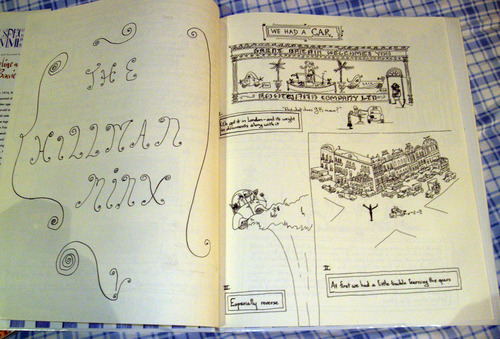 THE
HILLMAN
MINX
!
WE HAD A CAR.
GREAT BRITAIN WELCOMES YOU
COMPANY LTD
"But what does G.B. mean?"
I.
We got it in London - and its weight
in documents along with it
II.
Especially reverse
II.
At first we had a little trouble learning the gears